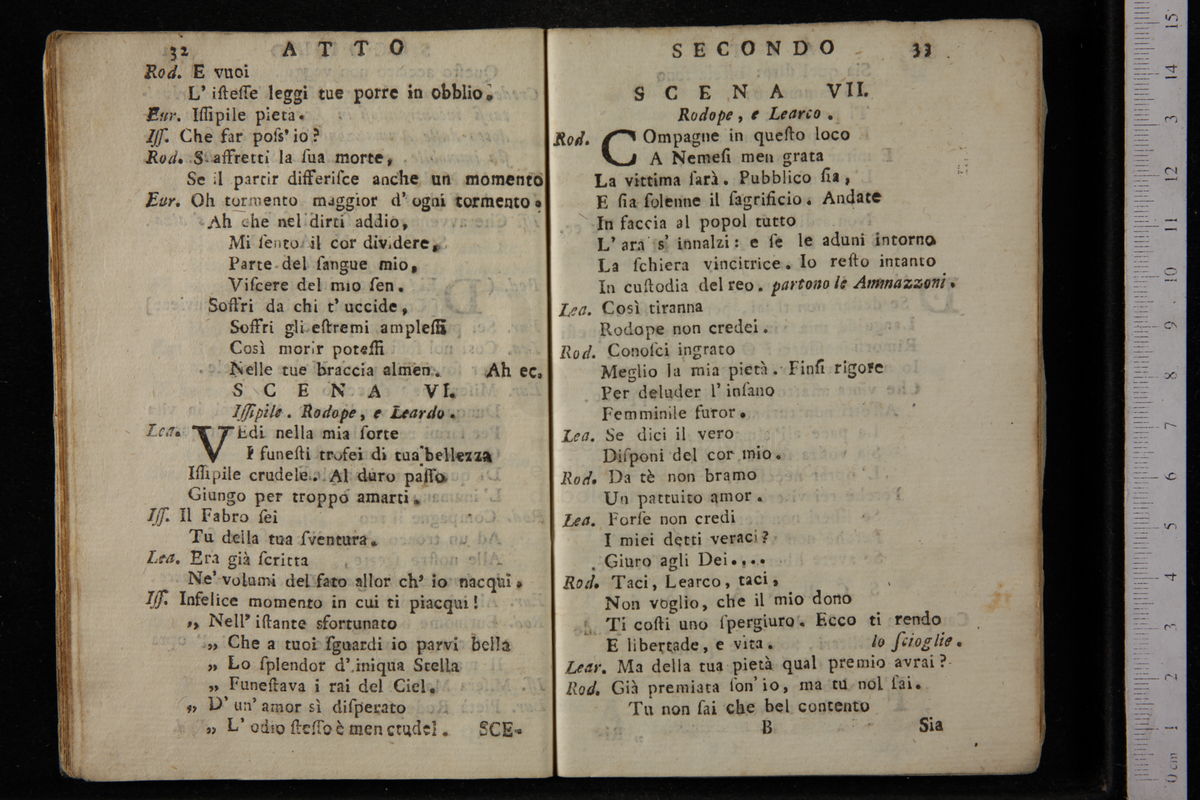 32 ATTO
Rod. E vuoi
L' iſteſſe leggi tue porre in obblio.
Eur. Iſſipile pieta.
Iſſ. Che far poſs' io?
Rod. S' affretti la ſua morte,
Se il partir differiſce anche un momento
Eur. Oh tormento maggior d' ogni tormento.
Ah che nel dirti addio,
Mi ſento il cor dividere,
Parte del ſangue mio,
Viſcere del mio ſen.
Soffri da chi t' uccide,
Soffri gli eſtremi ampleſſi
Così morir poteſſi
Nelle tue braccia almen. Ah ec.
SCENA VI.
Iſſipile. Rodope, e Leardo.
Lea. VEdi nella mia ſorte
I funeſti trofei di tua bellezza
Iſſipile crudele. Al duro paſſo
Giungo per troppo amarti.
Iſſ. Il Fabro ſei
Tu della tua ſventura.
Lea. Era già ſcritta
Ne' volumi del fato allor ch' io nacqui.
Iſſ. Infelice momento in cui ti piacqui!
„ Nell' iſtante sfortunato
„ Che a tuoi ſguardi io parvi bella
„ Lo ſplendor d' iniqua Stella
„ Funeſtava i rai del Ciel.
„ D' un' amor sì diſperato
„ L' odio ſteſſo è men crudel. SCE-
SECONDO 33
SCENA VII.
Rodope, e Learco.
Rod. COmpagne in queſto loco
A Nemeſi men grata
La vittima ſarà. Pubblico ſia,
E ſia ſolenne il ſagrificio. Andate
In faccia al popol tutto
L' ara s' innalzi: e ſe le aduni intorno
La ſchiera vincitrice. Io reſto intanto
In cuſtodia del reo. partono le Ammazzoni.
Lea. Così tiranna
Rodope non credei.
Rod. Conoſci ingrato
Meglio la mia pietà. Finſi rigore
Per deluder l' inſano
Femminile furor.
Lea. Se dici il vero
Diſponi del cor mio.
Rod. Da tè non bramo
Un pattuito amor.
Lea. Forſe non credi
I miei detti veraci?
Giuro agli Dei....
Rod. Taci, Learco, taci,
Non voglio, che il mio dono
Ti coſti uno ſpergiuro. Ecco ti rendo
E libertade, e vita. lo ſcioglie.
Lear. Ma della tua pietà qual premio avrai?
Rod. Già premiata ſon' io, ma tu nol ſai.
Tu non ſai che bel contento
B Sia
0 cm 1 2 3 4 5 6 7 8 9 10 11 12 13 14 15